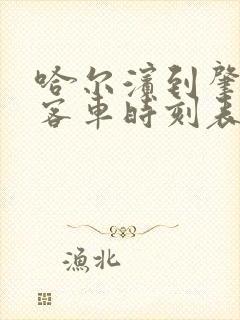 哈尔滨到肇
客车时刻表
漁北